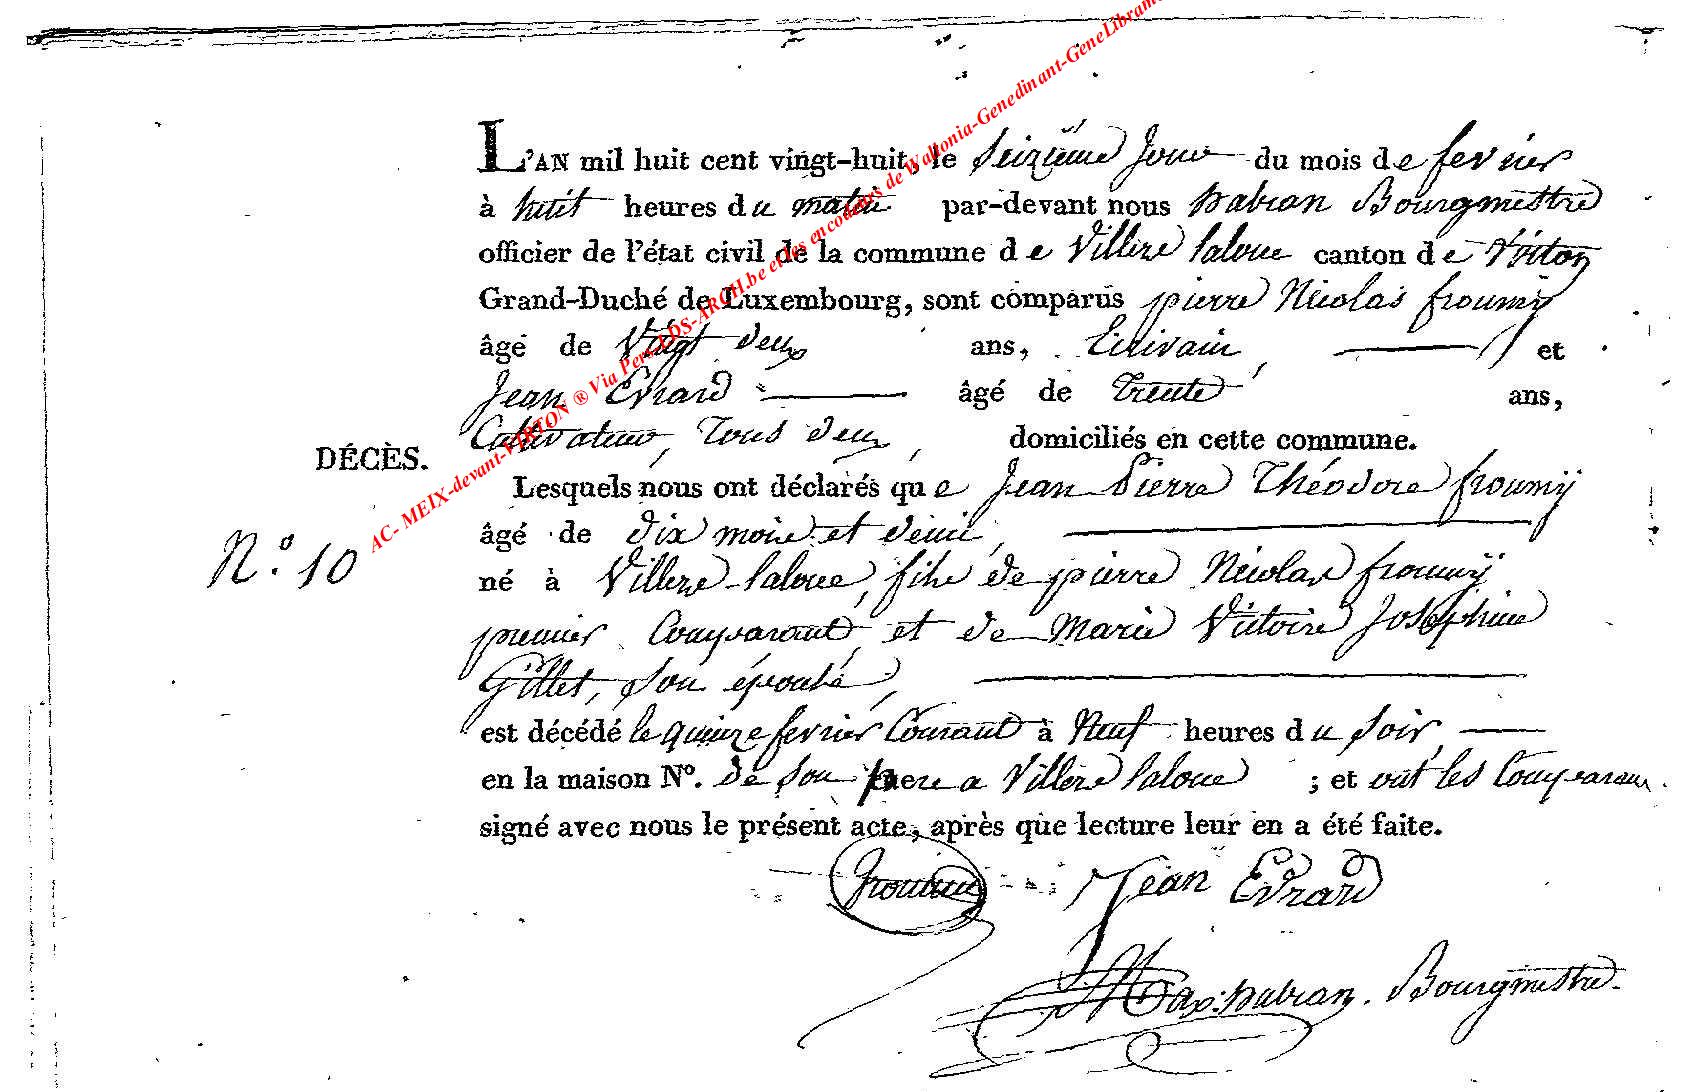 AC- MEIX-devant-VIRTON ® Via Pers-LDS-ARCH.be et les encodeurs de Wallonia-Genedinant-GeneLibram
L'AN mil huit cent vingt-huit, le Seizième Jour du mois de fevrier
à huit heures du matin par-devant nous habran Bourgmestre
officier de l'état civil de la commune de Villers laloue canton de Virton
Grand-Duché de Luxembourg, sont comparus pierre Nicolas froumÿ
âgé de Vingt deux ans, Ecrivain, et
Jean Evrard âgé de Trente ans,
Cultivateur, Tous deux, domiciliés en cette commune.
DÉCÈS.
Lesquels nous ont déclarés que Jean Pierre Théodore froumÿ
âgé de dix mois et demi,
N.° 10
né à Villers laloue, fils de pierre Nicolas froumÿ
premier Comparant, et de Marie Victoire Joséphine
Gillet, son épouse,
est décédé le quinze fevrier Courant à Neuf heures du soir,
en la maison N°. de son pere a Villers laloue ; et ont les Comparans
signé avec nous le présent acte, après que lecture leur en a été faite.
Jean Evrard
habran. Bourgmestre.